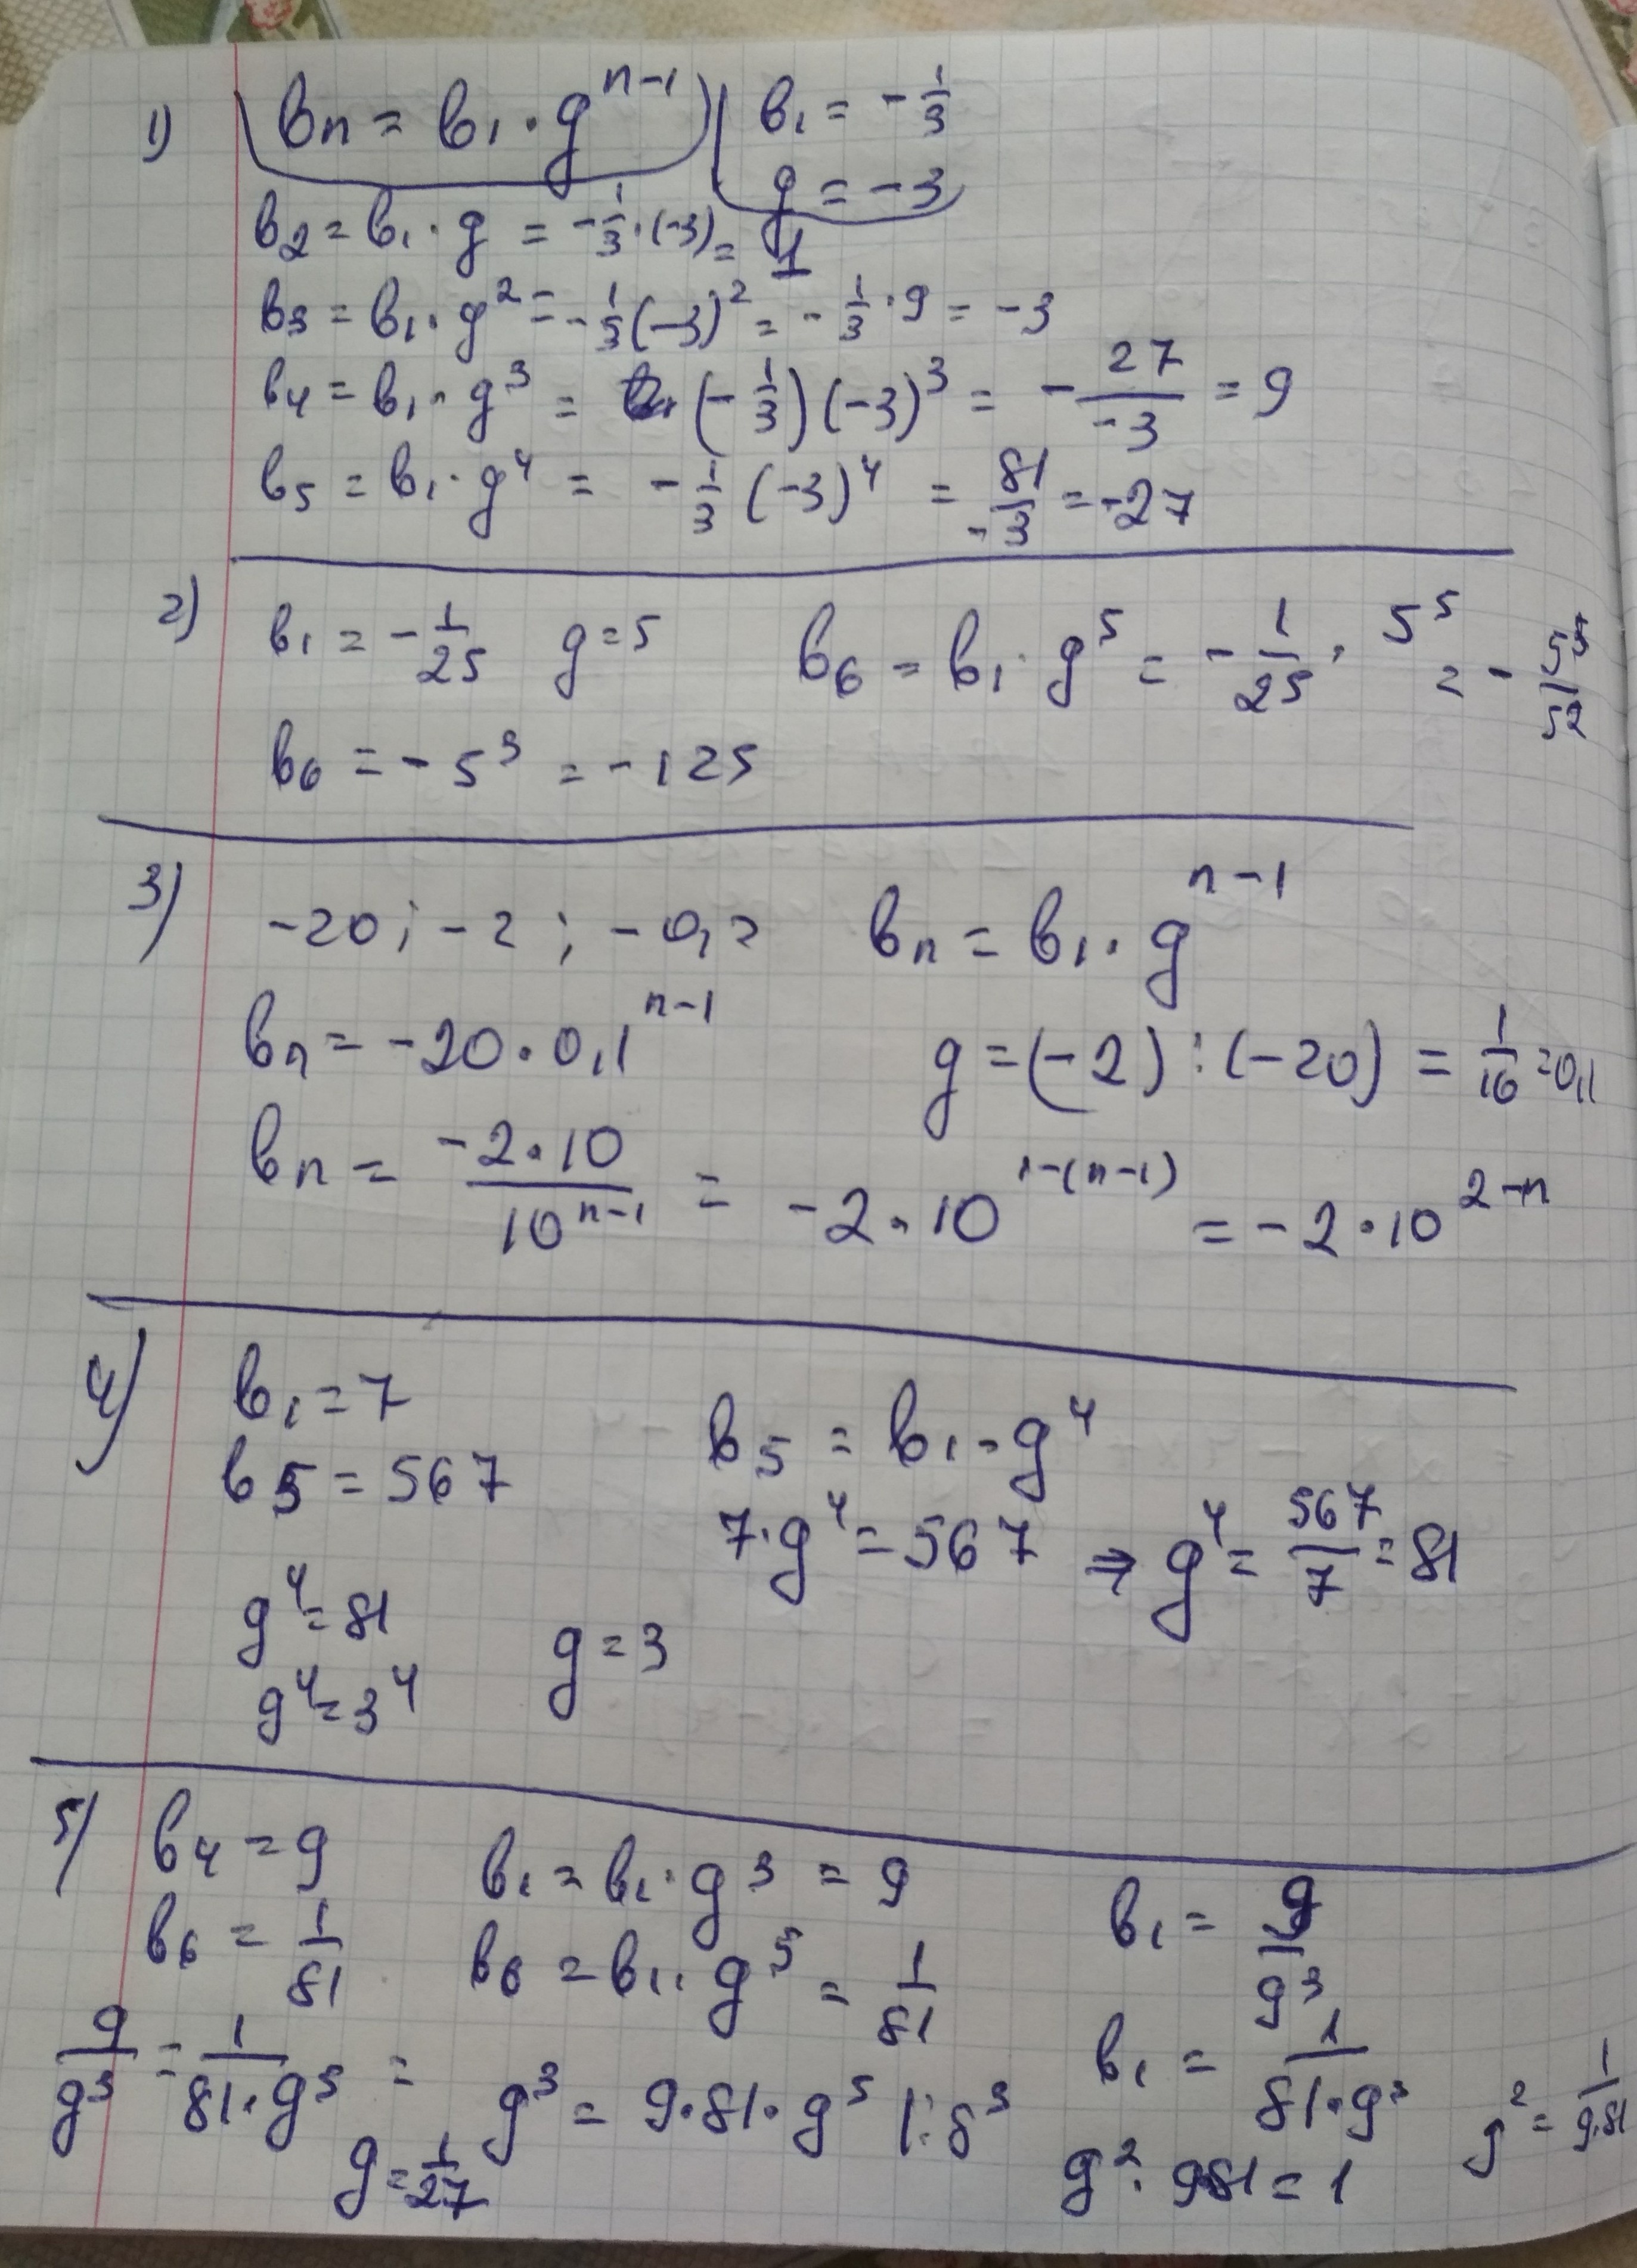 1) bn = b1 · g^(n-1) | b1 = -1/3
g = -3
b2 = b1 · g = -1/3 · (-3) = 1
b3 = b1 · g^2 = -1/3 (-3)^2 = -1/3 · 9 = -3
b4 = b1 · g^3 = (-1/3) (-3)^3 = -27/-3 = 9
b5 = b1 · g^4 = -1/3 (-3)^4 = 81/-3 = -27
2) b1 = -1/25 g = 5 b6 = b1 · g^5 = -1/25 · 5^5 = -5^5/5^2
b6 = -5^3 = -125
3) -20; -2; -0,2 bn = b1 · g^(n-1)
bn = -20 · 0,1^(n-1) g = (-2) : (-20) = 1/10 = 0,1
bn = -2·10/10^(n-1) = -2 · 10^(1-(n-1)) = -2 · 10^(2-n)
4) b1 = 7
b5 = 567 b5 = b1 · g^4
7·g^4 = 567 ⇒ g^4 = 567/7 = 81
g^4 = 81
g^4 = 3^4 g = 3
5) b4 = 9 b1 = b1 · g^3 = 9 b1 = 9/g^3
b6 = 1/81 b6 = b1 · g^5 = 1/81
b1 = 1/81·g^5
9/g^3 = 1/81·g^5 = g^3 = 9·81·g^5 |:g^3
g^2 · 9·81 = 1 g^2 = 1/9·81
g = 1/27